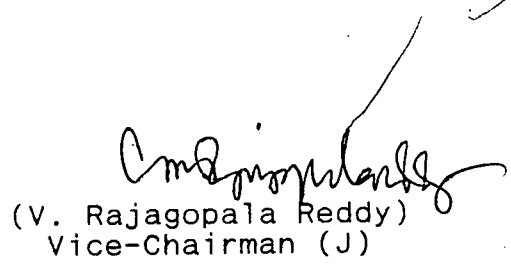 (V. Rajagopala Reddy)
Vice-Chairman (J)